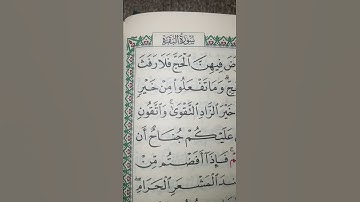 سُورَةُ البَقَرَةِ
فِيهِنَّ ٱلْحَجَّ فَلَا رَفَثَ
وَمَا تَفْعَلُوا۟ مِنْ خَيْرٍ
خَيْرَ ٱلزَّادِ ٱلتَّقْوَىٰ وَٱتَّقُونِ
عَلَيْكُمْ جُنَاحٌ أَن
فَإِذَآ أَفَضْتُم مِّنْ
ٱلْمَشْعَرِ ٱلْحَرَامِ